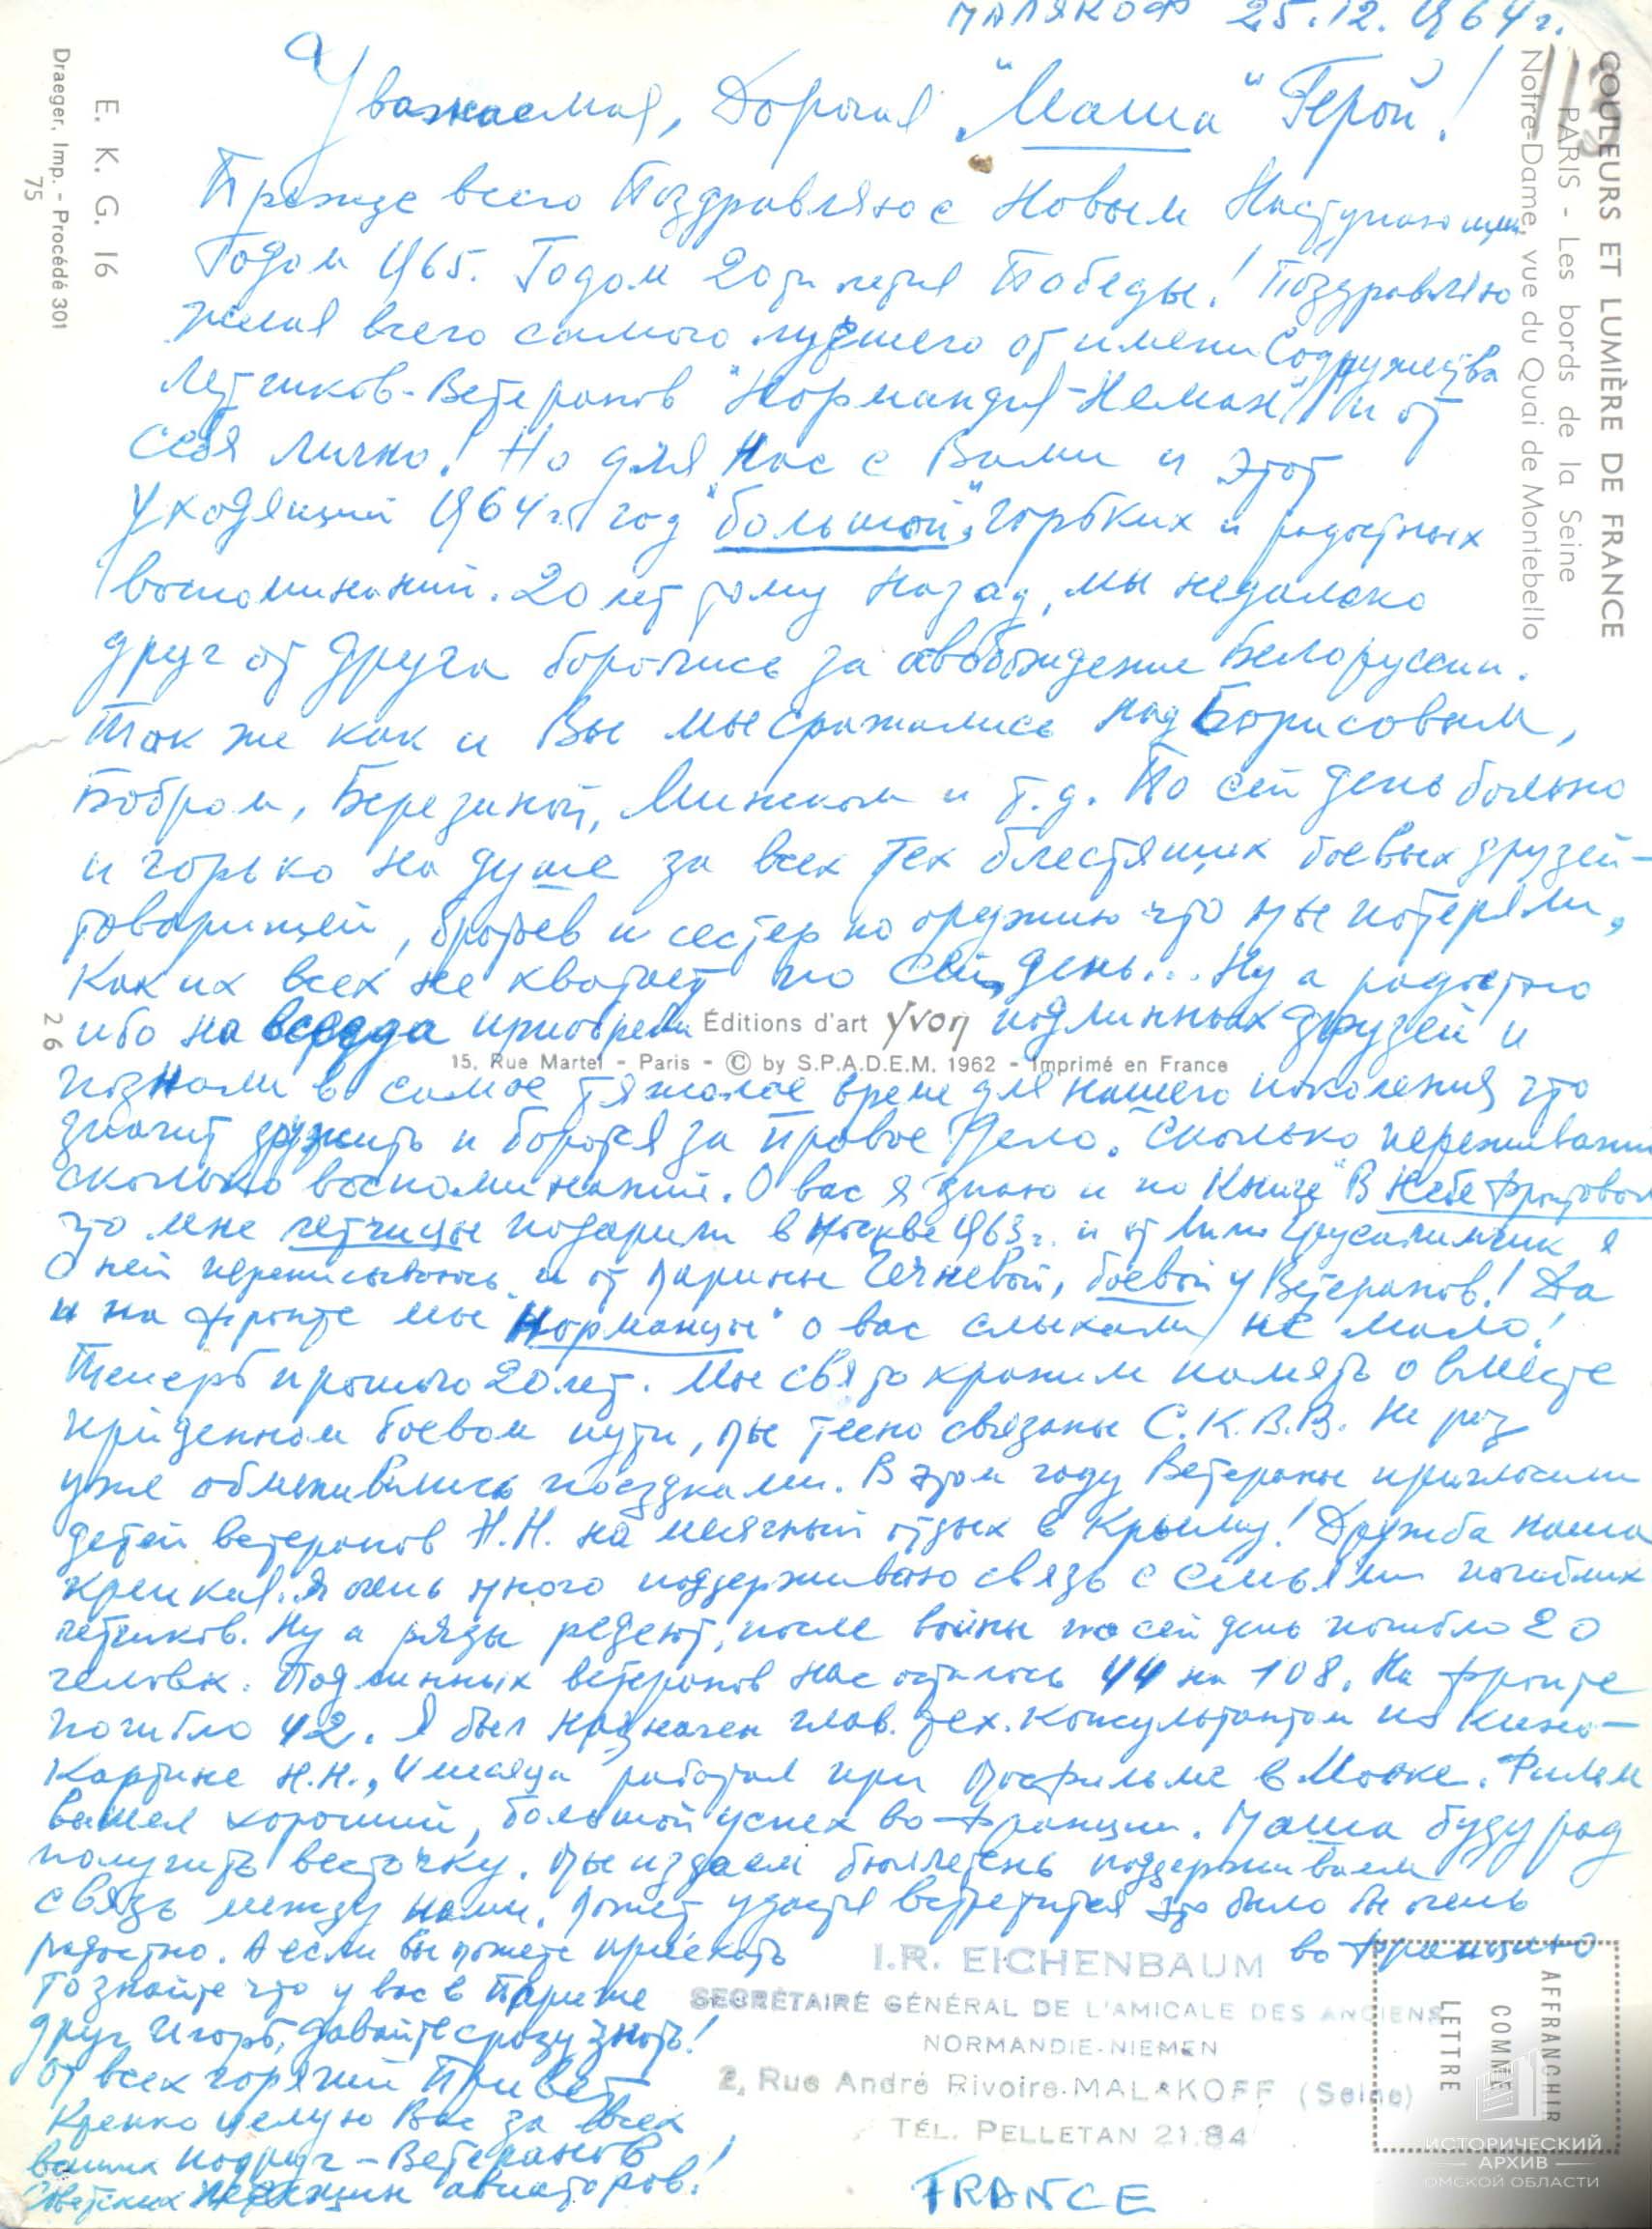 МАЛЯКОФ 25.12.1964 г.
Уважаемая, Дорогая "Маша" Герой!
Прежде всего Поздравляю с Новым Наступающим
Годом 1965. Годом 20ти летия Победы! Поздравляю
желая всего самого лучшего от имени Содружества
Летчиков-Ветеранов "Нормандия-Неман" и от
себя лично! Но для Нас с Вами и этот
Уходящий 1964 г. год "большой", горьких и радостных
воспоминаний. 20 лет тому назад, мы недалеко
друг от друга боролись за освобождение Белоруссии.
Так же как и Вы мы сражались над Борисовым,
Бобром, Березиной, Минском и т.д. По сей день больно
и горько на душе за всех тех блестящих боевых друзей-
товарищей, братьев и сестер по оружию что мы потеряли,
Как их всех не хватает по сей день... Ну а радостно
ибо на всегда приобрели подлинных друзей и
познали в самое тяжолое время для нашего поколения что
значит дружить и бороться за правое Дело. Сколько переживаний
сколько воспоминаний. О вас я знаю и по Книге "В Небе фронтовом
что мне летчицы подарили в Москве 1963 г. и от Лили Ерусалимчик я
с ней переписываюсь и от Марины Чечневой, боевой у Ветеранов! Да
и на фронте мы "Норманцы" о вас слыхали не мало!
Теперь прошло 20 лет. Мы свято храним память о вместе
пройденном боевом пути, мы тесно связаны С.К.В.В. Не раз
уже обменивались поездками. В этом году Ветераны пригласили
детей ветеранов Н.Н. на месячный отдых в Крыму! Дружба наша
крепкая. Я очень много поддерживаю связь с семьями погибших
летчиков. Ну а ряды редеют, после войны по сей день погибло 20
человек. Подлинных ветеранов нас осталось 44 на 108. На фронте
погибло 42. Я был назначен глав. тех. консультантом по кино-
Картине Н.Н., 4 месяца работал при Мосфильме в Москве. Фильм
вышел хороший, большой успех во Франции. Маша буду рад
получить весточку. Мы издаем бюллетень поддерживаем
связь между нами. Может удастся встретится это было бы очень
радостно. А если вы можете приехать во Францию
То знайте что у вас в Париже
друг Игорь, давайте сразу знать!
От всех горячий Привет
Крепко целую Вас за всех
ваших подруг - Ветеранов
Советских женщин авиаторов!
I.R. EICHENBAUM
SECRÉTAIRE GÉNÉRAL DE L'AMICALE DES ANCIENS
NORMANDIE-NIEMEN
2, Rue André Rivoire-MALAKOFF (Seine)
TÉL. PELLETAN 21.84
FRANCE
COULEURS ET LUMIÈRE DE FRANCE
PARIS - Les bords de la Seine
Notre-Dame, vue du Quai de Montebello
E. K. G. 16
Draeger, Imp. - Procédé 301
75
26
Éditions d'art Yvon
15, Rue Martel - Paris - © by S.P.A.D.E.M. 1962 - Imprimé en France
AFFRANCHIR
COMME
LETTRE
ИСТОРИЧЕСКИЙ
АРХИВ
ОМСКОЙ ОБЛАСТИ